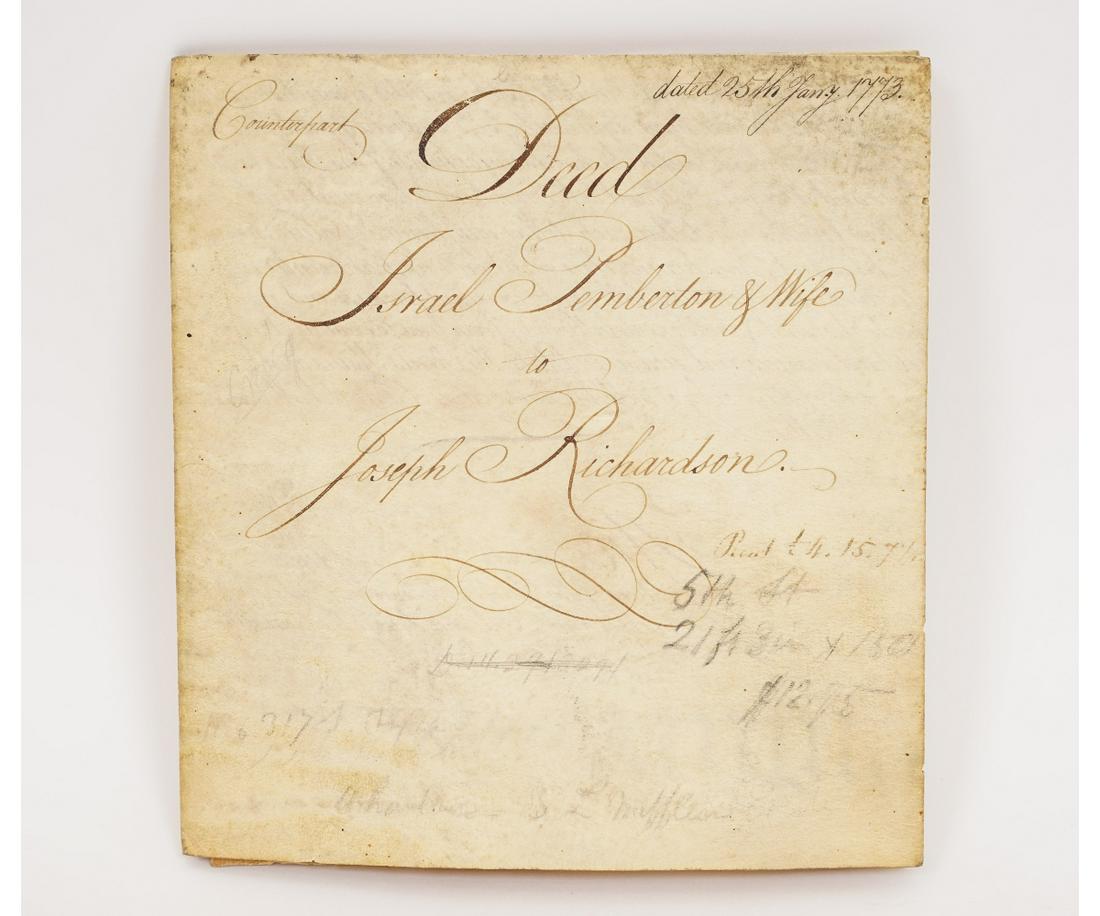 Counterpart
dated 25th Jany. 1773.
Deed
Israel Pemberton & Wife
to
Joseph Richardson.
Rent £ 4. 15. 7½
5th St
21 ft 3 in x
$12.75
317
S L Mifflin